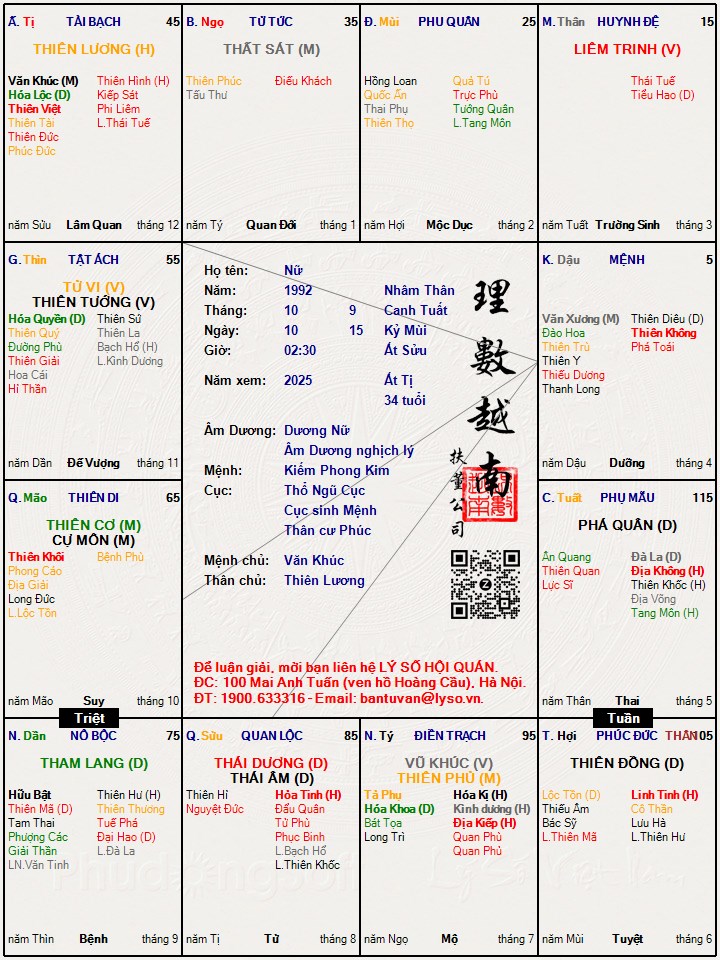 Ấ. Tị TÀI BẠCH 45
THIÊN LƯƠNG (H)
Văn Khúc (M) Thiên Hình (H)
Hóa Lộc (D) Kiếp Sát
Thiên Việt Phi Liêm
Thiên Tài L.Thái Tuế
Thiên Đức
Phúc Đức
năm Sửu Lâm Quan tháng 12
B. Ngọ TỬ TỨC 35
THẤT SÁT (M)
Thiên Phúc Điếu Khách
Tấu Thư
năm Tý Quan Đới tháng 1
Đ. Mùi PHU QUÂN 25
Hồng Loan Quả Tú
Quốc Ấn Trực Phù
Thai Phụ Tướng Quân
Thiên Thọ L.Tang Môn
năm Hợi Mộc Dục tháng 2
M. Thân HUYNH ĐỆ 15
LIÊM TRINH (V)
Thái Tuế
Tiểu Hao (D)
năm Tuất Trường Sinh tháng 3
G. Thìn TẬT ÁCH 55
TỬ VI (V)
THIÊN TƯỚNG (V)
Hóa Quyền (D) Thiên Sứ
Thiên Quý Thiên La
Đường Phù Bạch Hổ (H)
Thiên Giải L.Kình Dương
Hoa Cái
Hỉ Thần
năm Dần Đế Vượng tháng 11
Họ tên: Nữ
Năm: 1992 Nhâm Thân
Tháng: 10 9 Canh Tuất
Ngày: 10 15 Kỷ Mùi
Giờ: 02:30 Ất Sửu
Năm xem: 2025 Ất Tị
34 tuổi
Âm Dương: Dương Nữ
Âm Dương nghịch lý
Mệnh: Kiếm Phong Kim
Cục: Thổ Ngũ Cục
Cục sinh Mệnh
Thân cư Phúc
Mệnh chủ: Văn Khúc
Thân chủ: Thiên Lương
理數越南
扶董公司
Để luận giải, mời bạn liên hệ LÝ SỐ HỘI QUÁN.
ĐC: 100 Mai Anh Tuấn (ven hồ Hoàng Cầu), Hà Nội.
ĐT: 1900.633316 - Email: bantuvan@lyso.vn.
K. Dậu MỆNH 5
Văn Xương (M) Thiên Diêu (D)
Đào Hoa Thiên Không
Thiên Trù Phá Toái
Thiên Y
Thiếu Dương
Thanh Long
năm Dậu Dưỡng tháng 4
Q. Mão THIÊN DI 65
THIÊN CƠ (M)
CỰ MÔN (M)
Thiên Khôi Bệnh Phù
Phong Cáo
Địa Giải
Long Đức
L.Lộc Tồn
năm Mão Suy tháng 10
C. Tuất PHỤ MẪU 115
PHÁ QUÂN (D)
Ân Quang Đà La (D)
Thiên Quan Địa Không (H)
Lực Sĩ Thiên Khốc (H)
Địa Võng
Tang Môn (H)
năm Thân Thai tháng 5
Triệt
Tuần
N. Dần NÔ BỘC 75
THAM LANG (D)
Hữu Bật Thiên Hư (H)
Thiên Mã (D) Thiên Thương
Tam Thai Tuế Phá
Phượng Các Đại Hao (D)
Giải Thần L.Đà La
LN.Văn Tinh
năm Thìn Bệnh tháng 9
Q. Sửu QUAN LỘC 85
THÁI DƯƠNG (D)
THÁI ÂM (D)
Thiên Hỉ Hỏa Tinh (H)
Nguyệt Đức Đẩu Quân
Tử Phù
Phục Binh
L.Bạch Hổ
L.Thiên Khốc
năm Tị Tử tháng 8
N. Tý ĐIỀN TRẠCH 95
VŨ KHÚC (V)
THIÊN PHỦ (M)
Tả Phụ Hóa Kị (H)
Hóa Khoa (D) Kình dương (H)
Bát Tọa Địa Kiếp (H)
Long Trì Quan Phù
Quan Phủ
năm Ngọ Mộ tháng 7
T. Hợi PHÚC ĐỨC THÂN 105
THIÊN ĐỒNG (D)
Lộc Tồn (D) Linh Tinh (H)
Thiếu Âm Cô Thần
Bác Sỹ Lưu Hà
L.Thiên Mã L.Thiên Hư
năm Mùi Tuyệt tháng 6